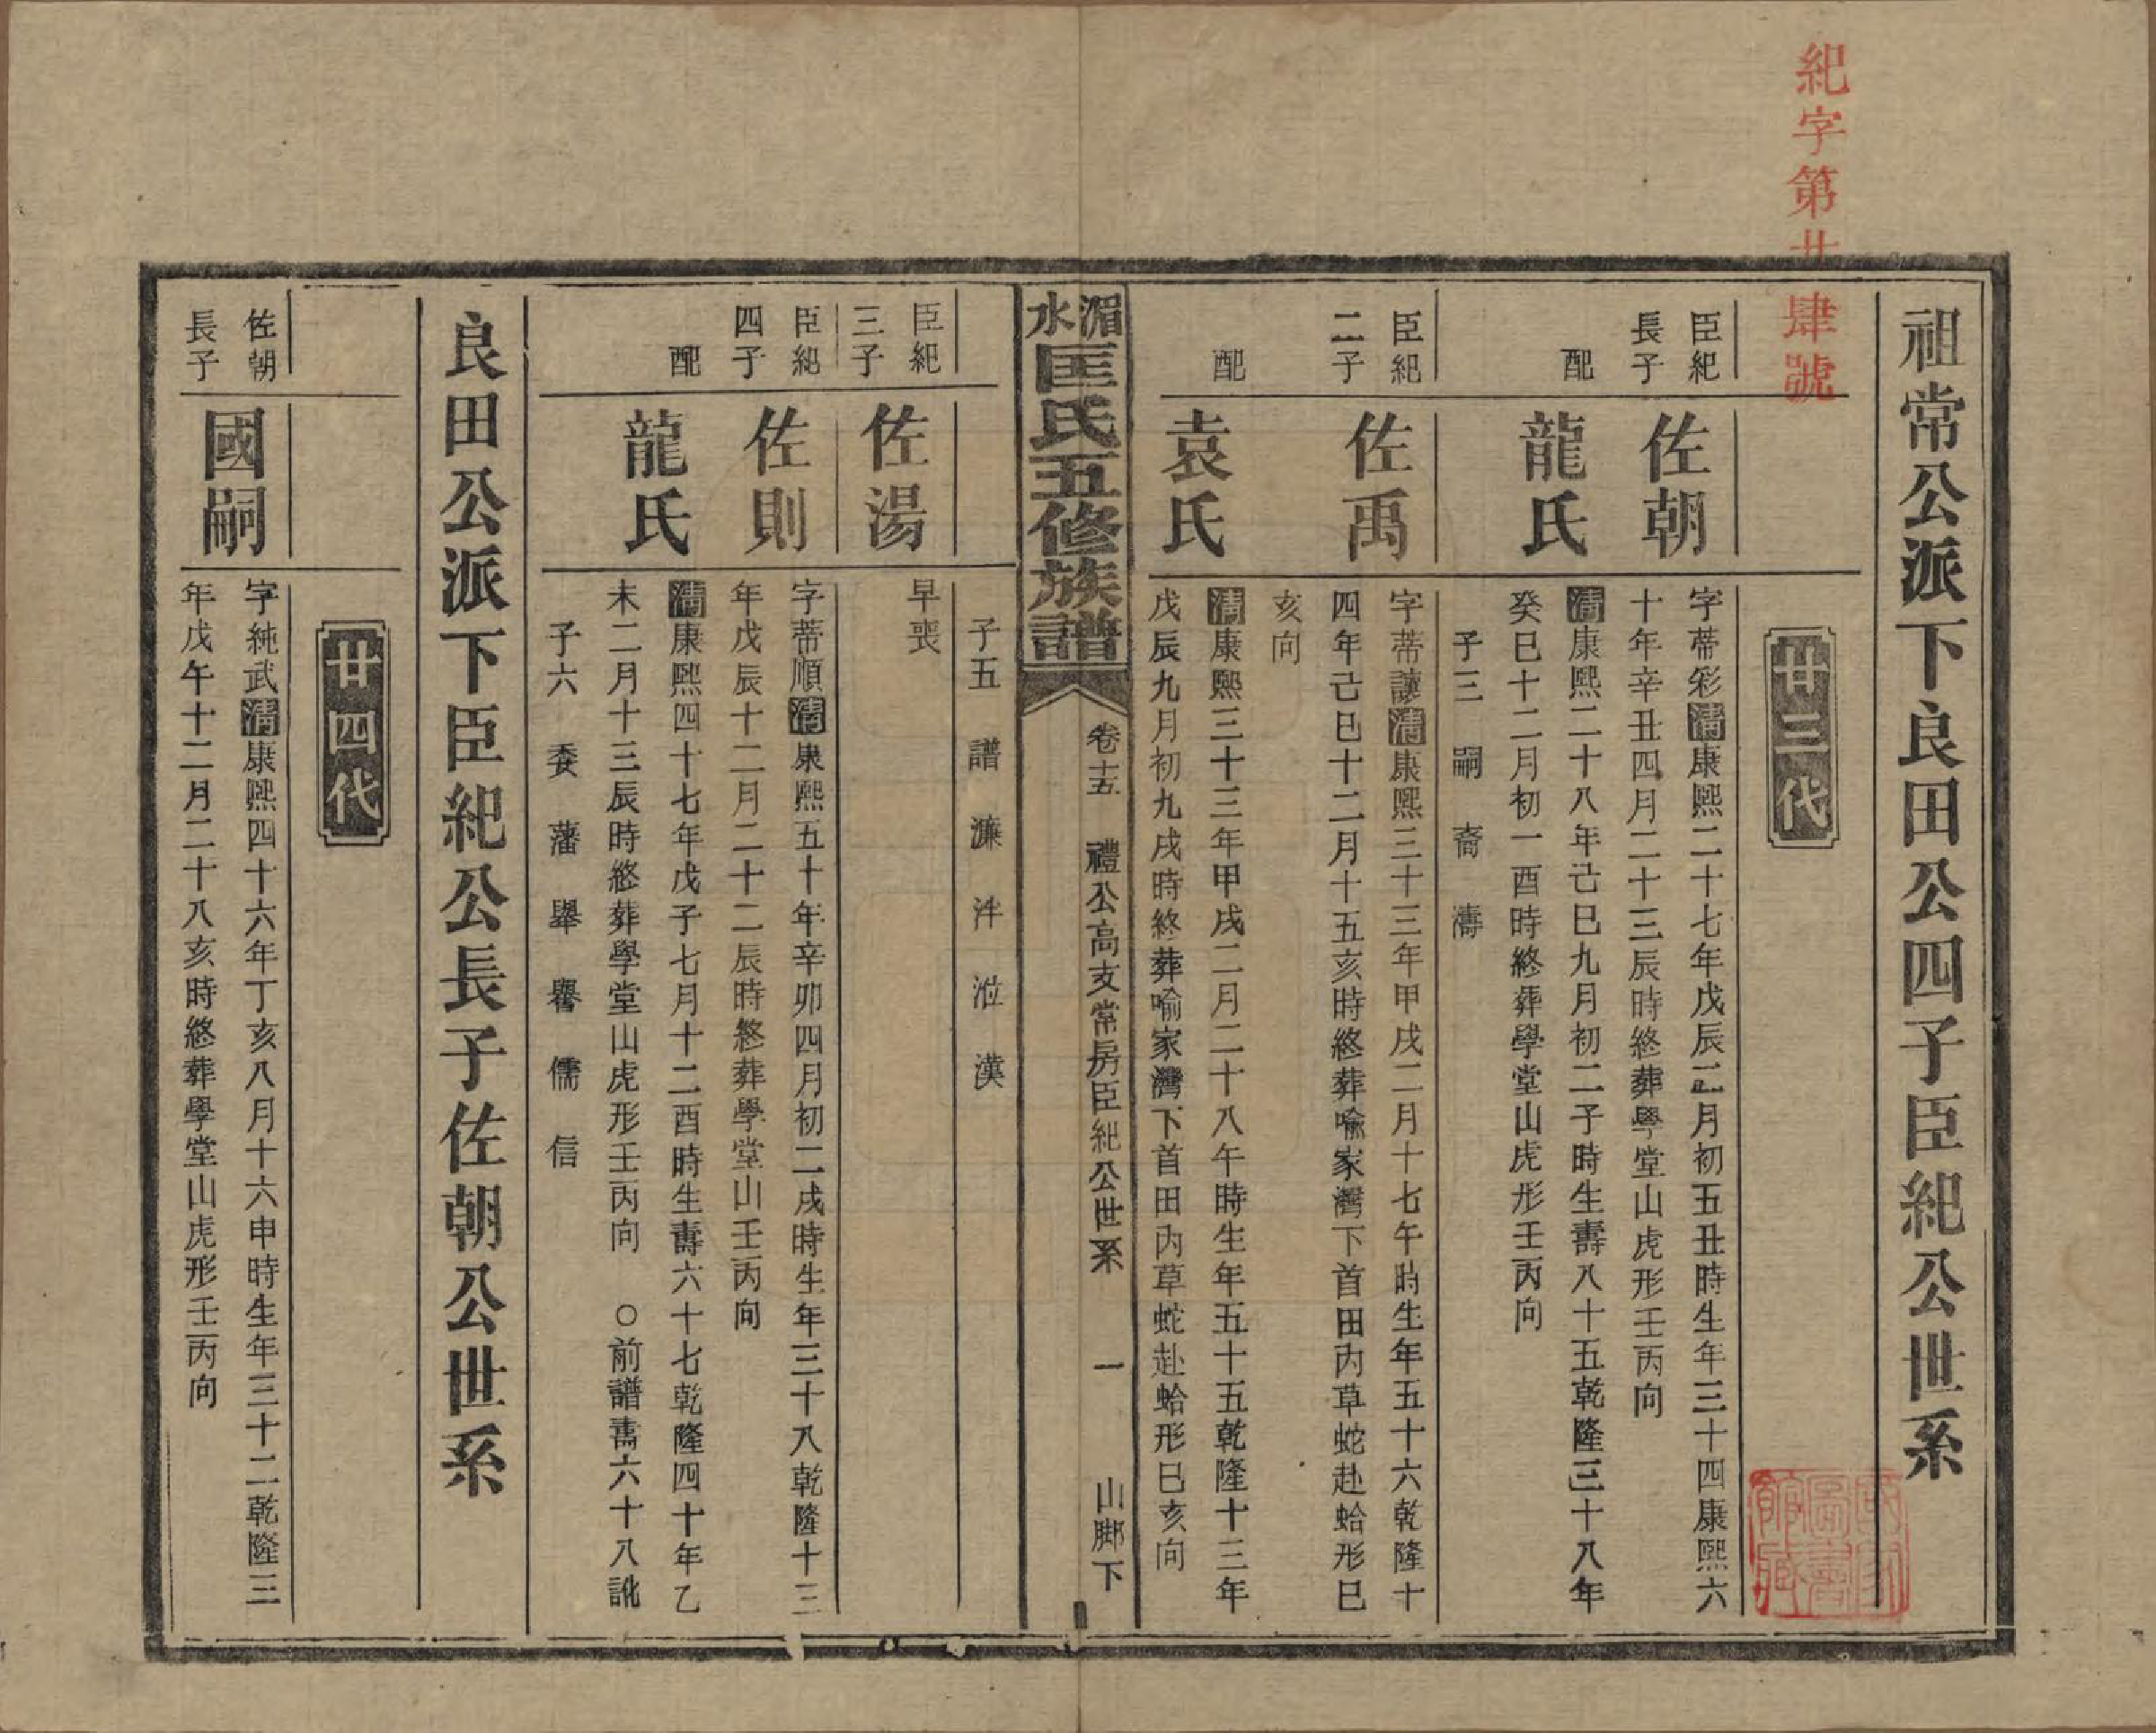 紀字第廿肆號
祖常公派下良田公四子臣紀公世系
廿三代
臣紀
長子
佐朝
字蒂彩清康熙二十七年戊辰二月初五丑時生年三十四康熙六
十年辛丑四月二十三辰時終葬學堂山虎形壬丙向
配
龍氏
清康熙二十八年己巳九月初二子時生壽八十五乾隆三十八年
癸巳十二月初一酉時終葬學堂山虎形壬丙向
子三 嗣 裔 濤
臣紀
二子
佐禹
字蒂讓清康熙三十三年甲戌二月十七午時生年五十六乾隆十
四年己巳十二月十五亥時終葬喻家灣下首田內草蛇赴蛤形巳
亥向
配
袁氏
清康熙三十三年甲戌二月二十八午時生年五十五乾隆十三年
戊辰九月初九戌時終葬喻家灣下首田內草蛇赴蛤形巳亥向
湄水匡氏五修族譜
卷十五 禮公高支常房臣紀公世系 一 山腳下
子五 譜 濂 泮 漢
臣紀
三子
佐湯
早喪
臣紀
四子
佐則
字蒂順清康熙五十年辛卯四月初二戌時生年三十八乾隆十三
年戊辰十二月二十二辰時終葬學堂山壬丙向
配
龍氏
清康熙四十七年戊子七月十二酉時生壽六十七乾隆四十年乙
未二月十三辰時終葬學堂山虎形壬丙向 ○前譜壽六十八訛
子六 委 藩 舉 譽 儒 信
良田公派下臣紀公長子佐朝公世系
廿四代
佐朝
長子
國嗣
字純武清康熙四十六年丁亥八月十六申時生年三十二乾隆三
年戊午十二月二十八亥時終葬學堂山虎形壬丙向
國家圖書館藏